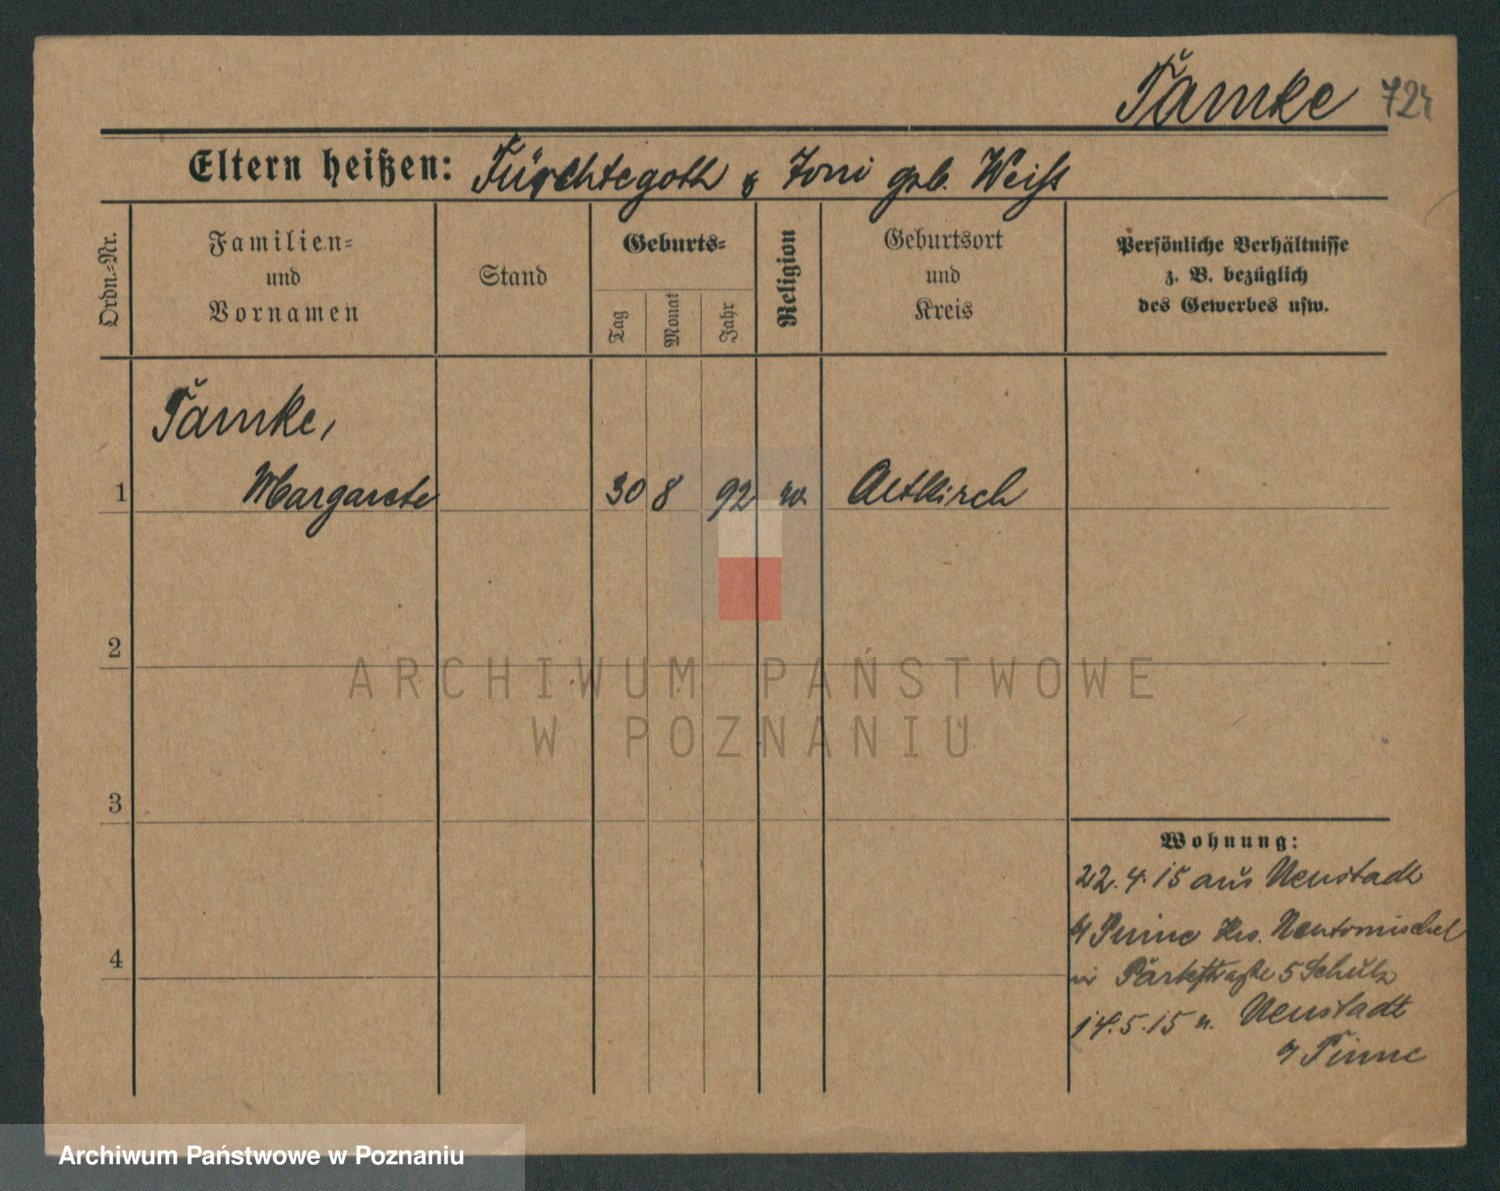 Tamke 724
Eltern heißen: Fürchtegott & Toni geb. Weiß
Ordn.-Nr.
Familien-
und
Vornamen
Stand
Geburts-
Tag
Monat
Jahr
Religion
Geburtsort
und
Kreis
Persönliche Verhältnisse
z. B. bezüglich
des Gewerbes usw.
Tamke,
1 Margarete 30 8 92 Altkirch
2
3
4
ARCHIWUM PAŃSTWOWE
W POZNANIU
Wohnung:
22.4.15 aus Neustadt
Pinne Krs. Neutomischel
5 Schulz
14.5.15 n. Neustadt
Pinne
Archiwum Państwowe w Poznaniu